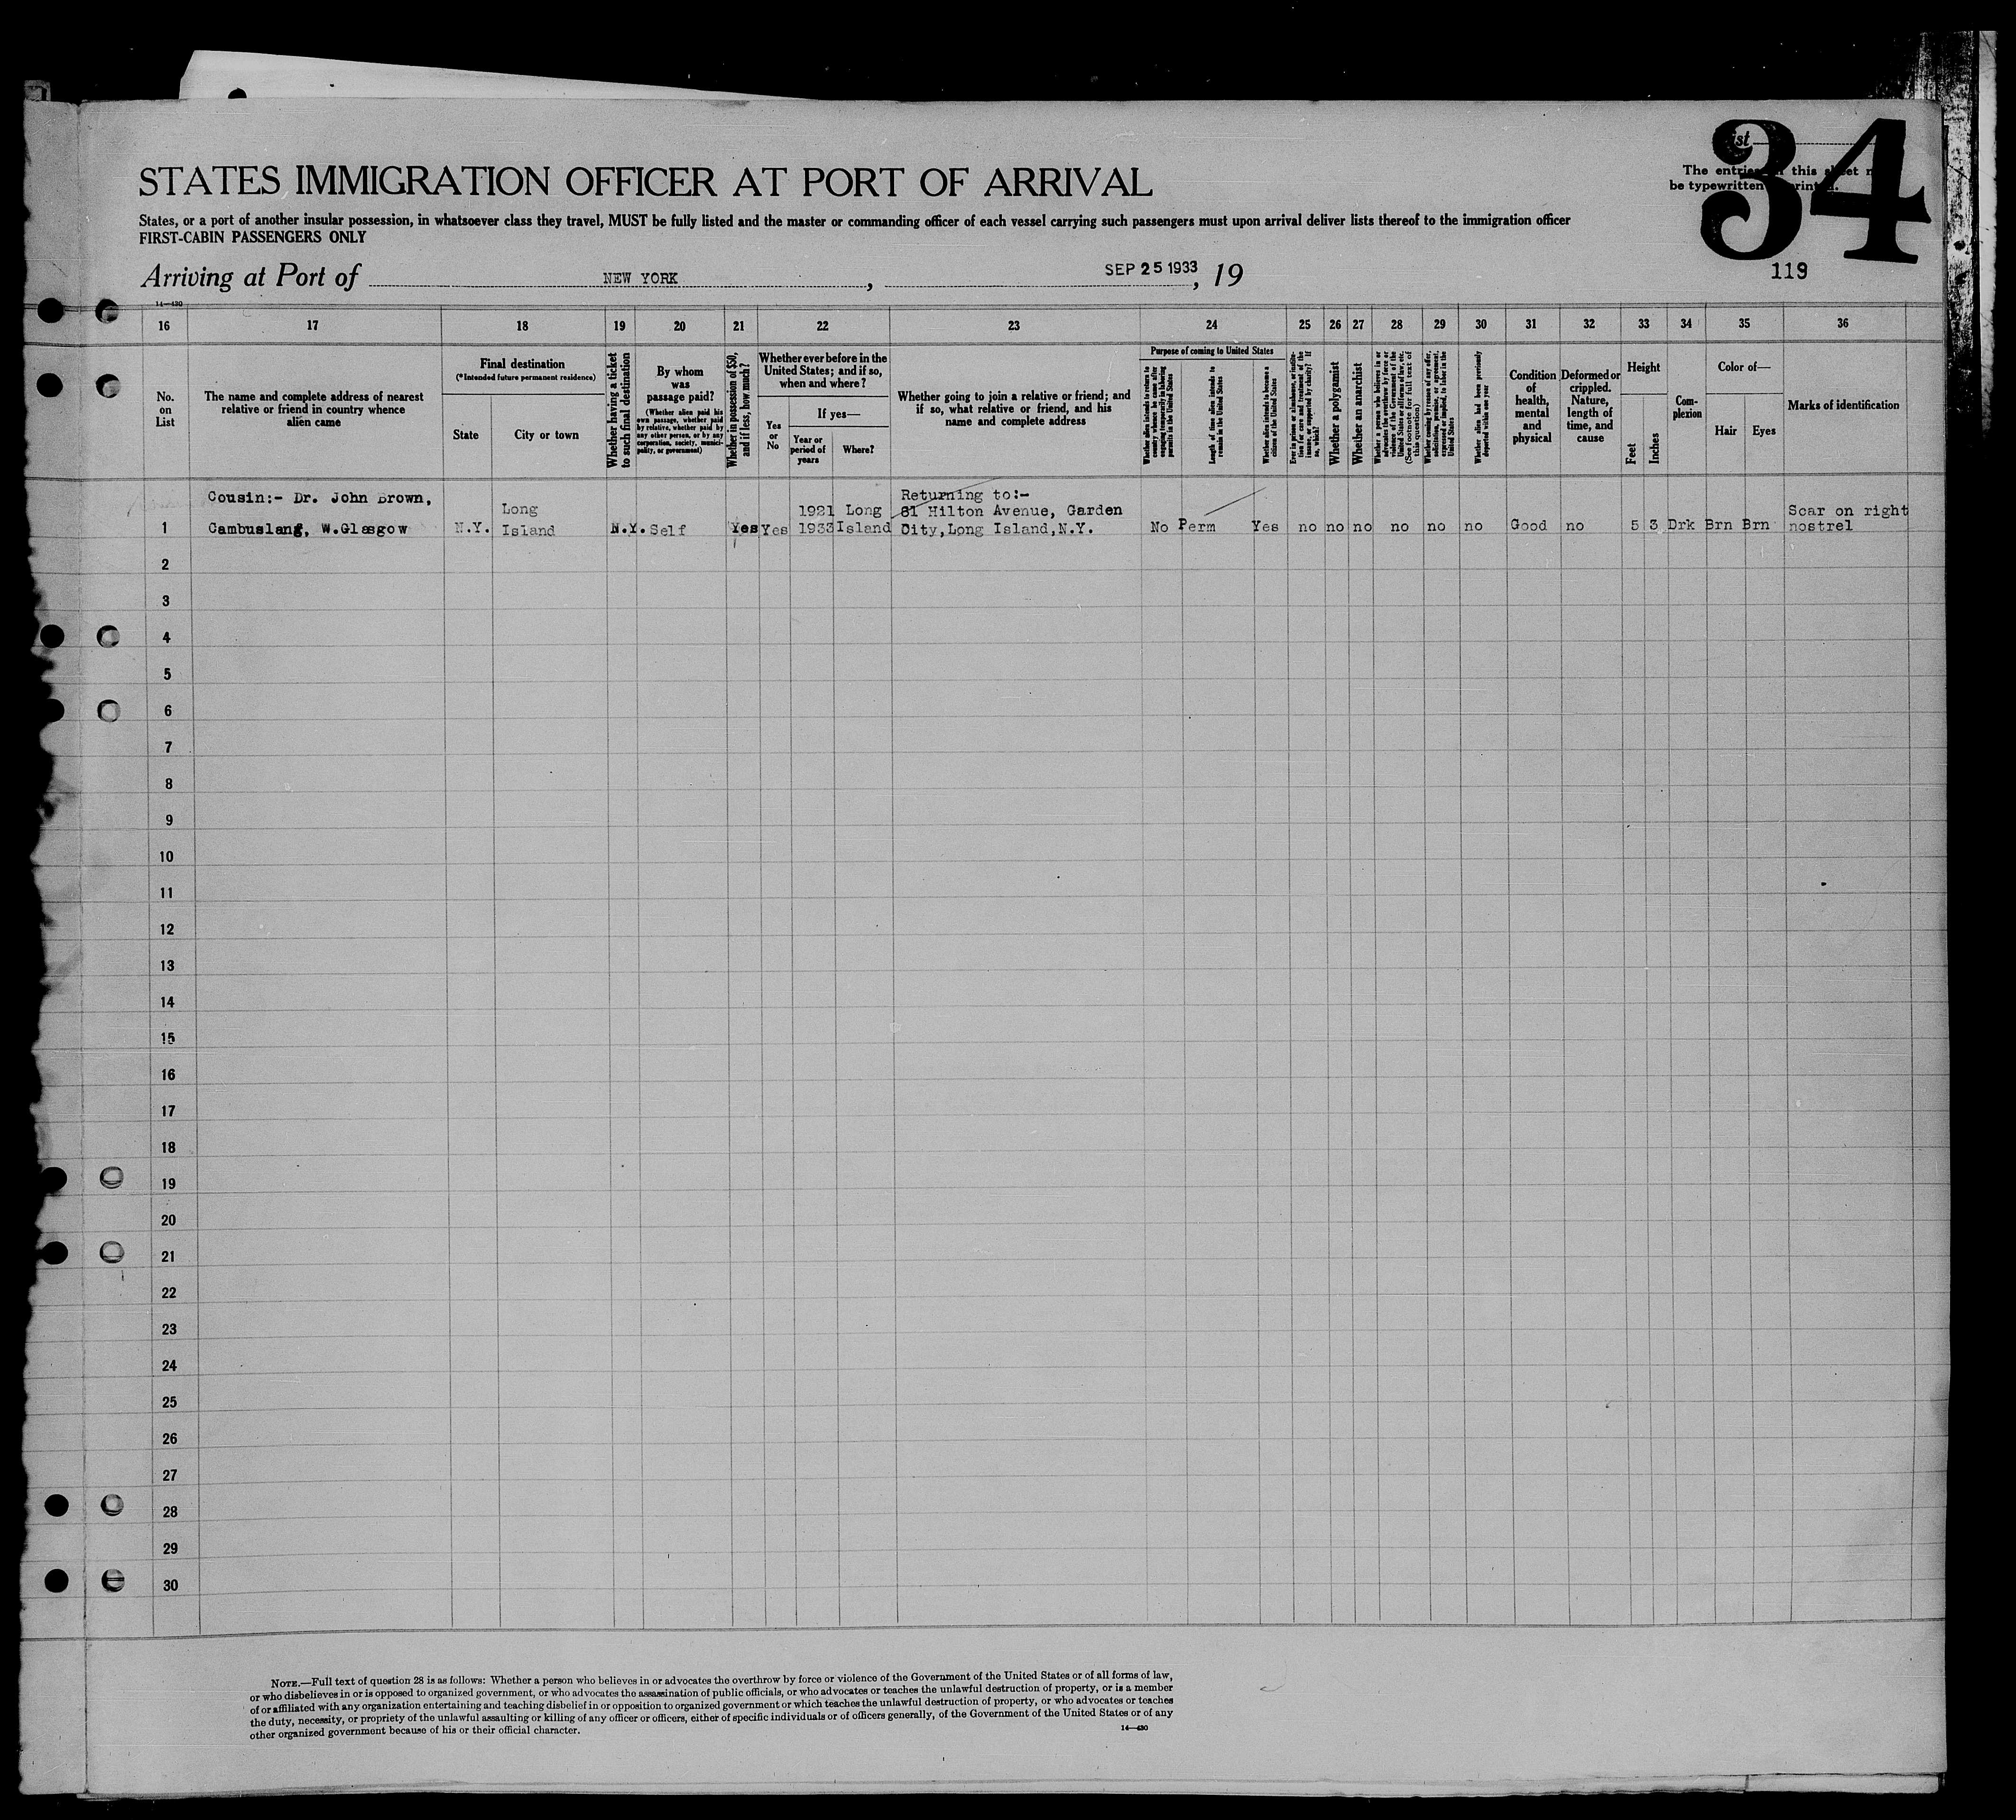 34
ist
The entries this sheet
be typewritten printed.
STATES IMMIGRATION OFFICER AT PORT OF ARRIVAL
States, or a port of another insular possession, in whatsoever class they travel, MUST be fully listed and the master or commanding officer of each vessel carrying such passengers must upon arrival deliver lists thereof to the immigration officer
FIRST-CABIN PASSENGERS ONLY
Arriving at Port of NEW YORK, SEP 25 1933, 19
119
14—430
16 17 18 19 20 21 22 23 24 25 26 27 28 29 30 31 32 33 34 35 36
No. on List
The name and complete address of nearest relative or friend in country whence alien came
Final destination
(*Intended future permanent residence)
State
City or town
Whether having a ticket to such final destination
By whom was passage paid?
(Whether alien paid his own passage, whether paid by relative, whether paid by any other person, or by any corporation, society, municipality, or government)
Whether in possession of $50, and if less, how much?
Whether ever before in the United States; and if so, when and where?
Yes or No
If yes—
Year or period of years
Where?
Whether going to join a relative or friend; and if so, what relative or friend, and his name and complete address
Purpose of coming to United States
Whether alien intends to return to country whence he came after engaging temporarily in laboring pursuits in the United States
Length of time alien intends to remain in the United States
Whether alien intends to become a citizen of the United States
Ever in prison or almshouse, or institution for care and treatment of the insane, or supported by charity? If so, which?
Whether a polygamist
Whether an anarchist
Whether a person who believes in or advocates the overthrow by force or violence of the Government of the United States or all forms of law, etc. (See footnote for full text of this question)
Whether coming by reason of any offer, solicitation, promise, or agreement, expressed or implied, to labor in the United States
Whether alien had been previously deported within one year
Condition of health, mental and physical
Deformed or crippled. Nature, length of time, and cause
Height
Feet
Inches
Complexion
Color of—
Hair
Eyes
Marks of identification
Cousin:- Dr. John Brown,
Cambuslang, W.Glasgow
N.Y.
Long
Island
N.Y.
Self
Yes
Yes
1921
1933
Long
Island
Returning to:-
81 Hilton Avenue, Garden
City,Long Island,N.Y.
No Perm Yes no no no no no no Good no 5 3 Drk Brn Brn
Scar on right
nostrel
1
2
3
4
5
6
7
8
9
10
11
12
13
14
15
16
17
18
19
20
21
22
23
24
25
26
27
28
29
30
NOTE.—Full text of question 28 is as follows: Whether a person who believes in or advocates the overthrow by force or violence of the Government of the United States or of all forms of law,
or who disbelieves in or is opposed to organized government, or who advocates the assassination of public officials, or who advocates or teaches the unlawful destruction of property, or is a member
of or affiliated with any organization entertaining and teaching disbelief in or opposition to organized government or which teaches the unlawful destruction of property, or who advocates or teaches
the duty, necessity, or propriety of the unlawful assaulting or killing of any officer or officers, either of specific individuals or of officers generally, of the Government of the United States or of any
other organized government because of his or their official character.
14—430